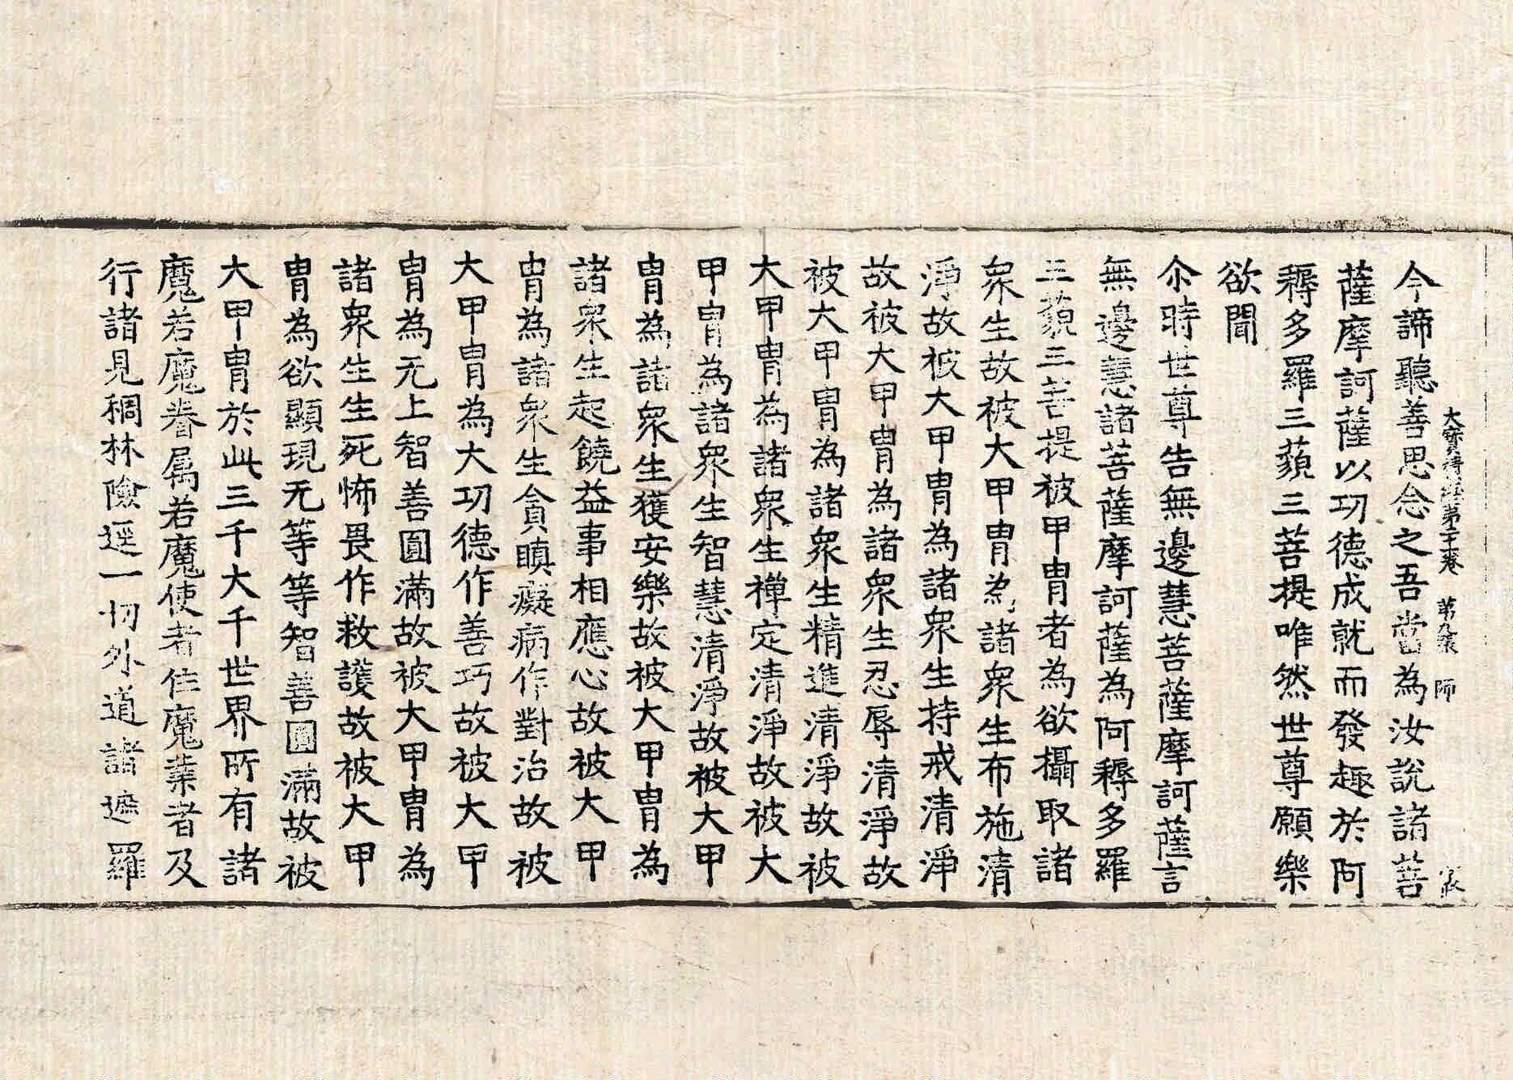 大寶積經第二十一卷 第九張 師
今諦聽善思念之吾當為汝說諸菩
薩摩訶薩以功德成就而發趣於阿
耨多羅三藐三菩提唯然世尊願樂
欲聞
尒時世尊告無邊慧菩薩摩訶薩言
無邊慧諸菩薩摩訶薩為阿耨多羅
三藐三菩提被甲冑者為欲攝取諸
衆生故被大甲冑為諸衆生布施清
淨故被大甲冑為諸衆生持戒清淨
故被大甲冑為諸衆生忍辱清淨故
被大甲冑為諸衆生精進清淨故被
大甲冑為諸衆生禪定清淨故被大
甲冑為諸衆生智慧清淨故被大甲
冑為諸衆生獲安樂故被大甲冑為
諸衆生起饒益事相應心故被大甲
冑為諸衆生貪瞋癡病作對治故被
大甲冑為大功德作善巧故被大甲
冑為无上智善圓滿故被大甲冑為
諸衆生生死怖畏作救護故被大甲
冑為欲顯現无等等智善圓滿故被
大甲冑於此三千大千世界所有諸
魔若魔眷属若魔使者住魔業者及
行諸見稠林險逕一切外道諸遮羅